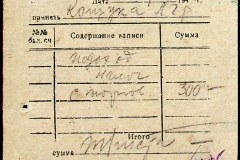 Дата
принять Кащука А Гр.
№№ бал. сч. Содержание записи Сумма
подоход
налог
с торгов 300-
Итого
сумма Триста